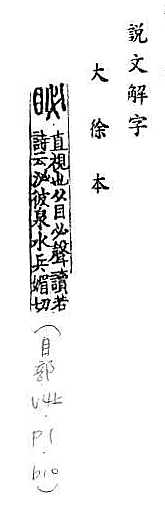 說文解字
大徐本
䀣 直視也从目必聲讀若
詩云泌彼泉水兵媚切
(目部 V4上.P1.b10)